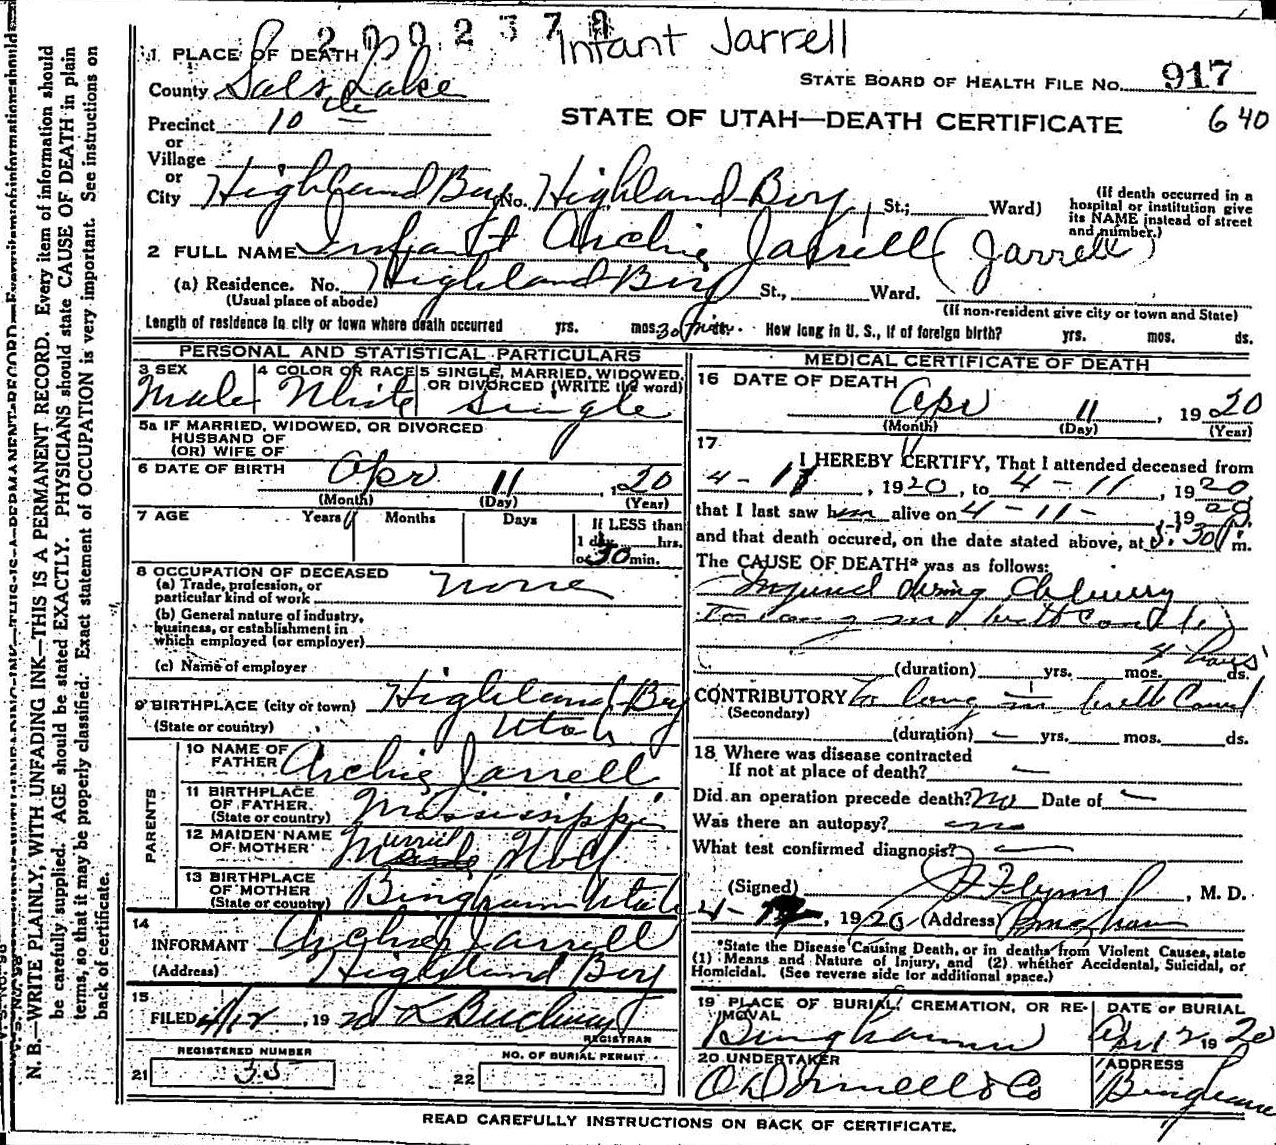 2002379
Infant Jarrell
1 PLACE OF DEATH
STATE BOARD OF HEALTH FILE No. 917
County Salt Lake
640
STATE OF UTAH—DEATH CERTIFICATE
Precinct 10
or
Village
or
City Highland Boy No. Highland Boy St.; Ward)
(If death occurred in a hospital or institution give its NAME instead of street and number.)
2 FULL NAME Infant Archie Jarrell (Jarrell)
(a) Residence. No. Highland Boy St., Ward.
(Usual place of abode)
(If non-resident give city or town and State)
Length of residence in city or town where death occurred yrs. mos. 30 How long in U. S., if of foreign birth? yrs. mos. ds.
PERSONAL AND STATISTICAL PARTICULARS
3 SEX
Male
4 COLOR OR RACE
White
5 SINGLE, MARRIED, WIDOWED, OR DIVORCED (WRITE the word)
Single
5a IF MARRIED, WIDOWED, OR DIVORCED
HUSBAND OF
(OR) WIFE OF
6 DATE OF BIRTH Apr 11, 1920
(Month) (Day) (Year)
7 AGE Years Months Days If LESS than
1 day hrs.
or 30 min.
8 OCCUPATION OF DECEASED none
(a) Trade, profession, or
particular kind of work
(b) General nature of industry,
business, or establishment in
which employed (or employer)
(c) Name of employer
9 BIRTHPLACE (city or town) Highland Boy
(State or country) Utah
PARENTS
10 NAME OF FATHER Archie Jarrell
11 BIRTHPLACE OF FATHER (State or country) Mississippi
12 MAIDEN NAME OF MOTHER
13 BIRTHPLACE OF MOTHER (State or country) Bingham Utah
14
INFORMANT Archie Jarrell
(Address) Highland Boy
15
FILED 4/12, 1920
REGISTRAR
REGISTERED NUMBER
21 35
NO. OF BURIAL PERMIT
22
MEDICAL CERTIFICATE OF DEATH
16 DATE OF DEATH
Apr 11, 1920
(Month) (Day) (Year)
17
I HEREBY CERTIFY, That I attended deceased from
4-11, 1920, to 4-11, 1920,
that I last saw him alive on 4-11-1920,
and that death occured, on the date stated above, at 5:30 P m.
The CAUSE OF DEATH* was as follows:
Injured during delivery
Too long in birth canal
(duration) yrs. mos. ds.
CONTRIBUTORY To long in birth canal
(Secondary)
(duration) yrs. mos. ds.
18 Where was disease contracted
If not at place of death?
Did an operation precede death? no Date of
Was there an autopsy? no
What test confirmed diagnosis?
(Signed) Flynn, M. D.
1920 (Address) Bingham
*State the Disease Causing Death, or in deaths from Violent Causes, state
(1) Means and Nature of Injury, and (2) whether Accidental, Suicidal, or
Homicidal. (See reverse side for additional space.)
19 PLACE OF BURIAL, CREMATION, OR REMOVAL
Bingham
DATE OF BURIAL
Apr 12 1920
20 UNDERTAKER
O'Donnell & Co
ADDRESS
Bingham
READ CAREFULLY INSTRUCTIONS ON BACK OF CERTIFICATE.
N. B.—WRITE PLAINLY, WITH UNFADING INK—THIS IS A PERMANENT RECORD. Every item of information should
be carefully supplied. AGE should be stated EXACTLY. PHYSICIANS should state CAUSE OF DEATH in plain
terms, so that it may be properly classified. Exact statement of OCCUPATION is very important. See instructions on
back of certificate.